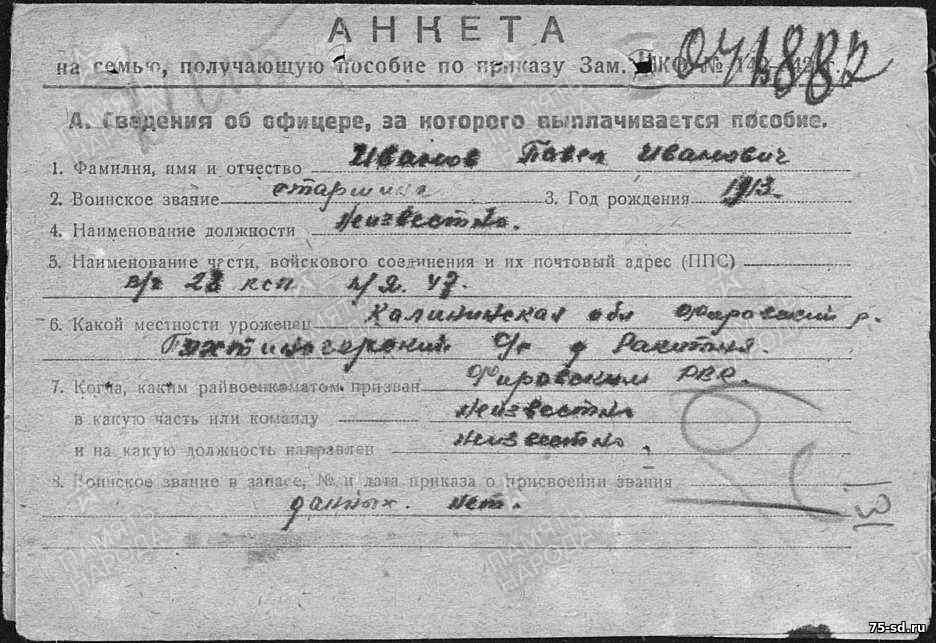 АНКЕТА
на семью, получающую пособие по приказу Зам. НКО №
041882
А. Сведения об офицере, за которого выплачивается пособие.
1. Фамилия, имя и отчество Иванов Павел Иванович
2. Воинское звание старшина 3. Год рождения 1913
4. Наименование должности неизвестно.
5. Наименование части, войскового соединения и их почтовый адрес (ППС)
в/ч 28 ксп п/я. 47.
6. Какой местности уроженец Калининская обл Фировский р.
с/с д Ракитня.
7. Когда, каким райвоенкоматом призван Фировским РВК.
в какую часть или команду неизвестно
и на какую должность направлен неизвестно
8. Воинское звание в запасе, № и дата приказа о присвоении звания
данных. нет.
ПАМЯТЬ НАРОДА
75-sd.ru